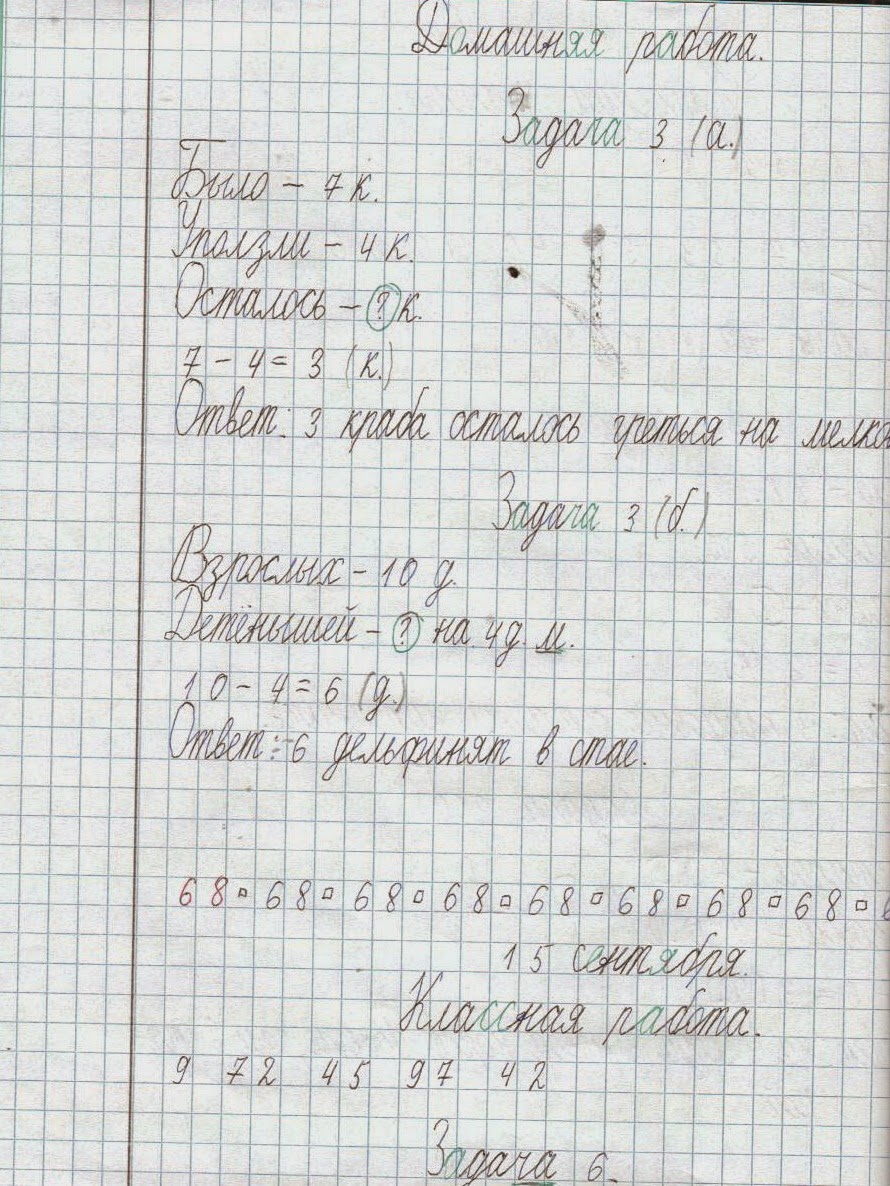 Домашняя работа.
Задача 3 (а.)
Было – 7 к.
Уползли – 4 к.
Осталось – ? к.
7 – 4 = 3 (к.)
Ответ: 3 краба осталось греться на мелко
Задача 3 (б.)
Взрослых – 10 д.
Детёнышей – ? на 4 д. м.
10 – 4 = 6 (д.)
Ответ: 6 дельфинят в стае.
68▫68▫68▫68▫68▫68▫68▫68▫6
15 сентября.
Классная работа.
9 72 45 97 42
Задача 6.